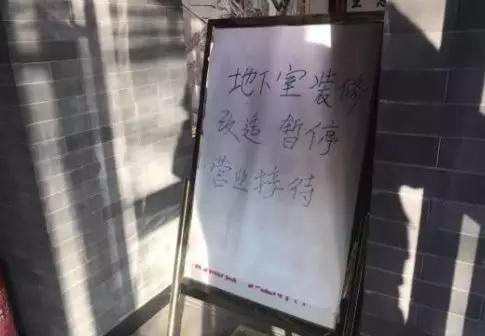 地下室装修
改造 暂停
营业接待